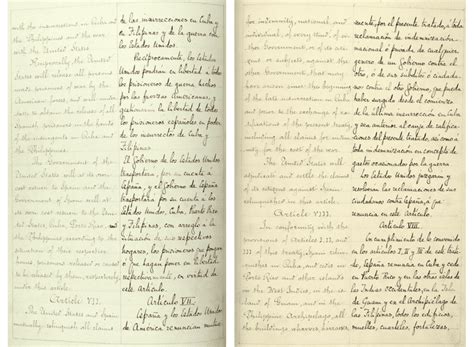 with the insurrection in Cuba
the Philippines and the war
with the United States.
Reciprocally, the United
States will release all persons
made prisoners of war by the
American forces, and will under-
take to obtain the release of all
Spanish prisoners in the hands
of the insurgents in Cuba and
the Philippines.
The Government of the
United States will at its own
cost return to Spain and the
Government of Spain will at
its own cost return to the United
States, Cuba, Porto Rico, and
the Philippines, according to the
situation of their respective
homes, prisoners released or caused
to be released by them, respectively,
under this article.
Article VII.
The United States and Spain
mutually relinquish all claims
de las insurrecciones en Cuba y
en Filipinas y de la guerra con
los Estados Unidos.
Recíprocamente, los Estados
Unidos pondrán en libertad á todos
los prisioneros de guerra hechos
por las fuerzas Americanas, y
gestionarán la libertad de todos
los prisioneros españoles en poder
de los insurrectos de Cuba y
Filipinas.
El Gobierno de los Estados Unidos
trasportará, por su cuenta á
España, y el Gobierno de España
trasportará por su cuenta á los
Estados Unidos, Cuba, Puerto Rico
y Filipinas, con arreglo á la
situación de sus respectivos
hogares, los prisioneros que pongan
ó que hagan poner en libertad
respectivamente, en virtud de
este Artículo.
Artículo VII.
España y los Estados Unidos
de América renuncian mútua-
for indemnity, national and
individual, of every kind, of either
Government, or of its citizens or
subjects, against the other
Government, that may have
arisen since the beginning of
the late insurrection in Cuba
and prior to the exchange of
ratifications of the present treaty,
including all claims for indem-
nity for the cost of the war.
The United States will
adjudicate and settle the claims
of its citizens against Spain
relinquished in this article.
Article VIII.
In conformity with the
provisions of Articles I, II, and
III of this treaty, Spain relin-
quishes in Cuba, and cedes in
Porto Rico and other islands
in the West Indies, in the
island of Guam, and in the
Philippine Archipelago, all
the buildings, wharves, barracks,
mente, por el presente tratado, á toda
reclamación de indemnización
nacional ó privada de cualquier
género de un Gobierno contra el
otro, ó de sus súbditos ó ciudada-
nos contra el otro Gobierno, que pueda
haber surgido desde el comienzo
de la última insurrección en Cuba
y sea anterior al canje de ratifica-
ciones del presente tratado, así como á
toda indemnización en concepto de
gastos ocasionados por la guerra.
Los Estados Unidos juzgarán y
resolverán las reclamaciones de sus
ciudadanos contra España, á que
renuncia en este Artículo.
Artículo VIII.
En cumplimiento de lo convenido
en los Artículos I, II y III de este tratado,
España renuncia en Cuba y cede
en Puerto Rico y en las otras islas
de las Indias Occidentales, en la Isla
de Guam y en el Archipiélago de
las Filipinas, todos los edificios,
muelles, cuarteles, fortalezas,